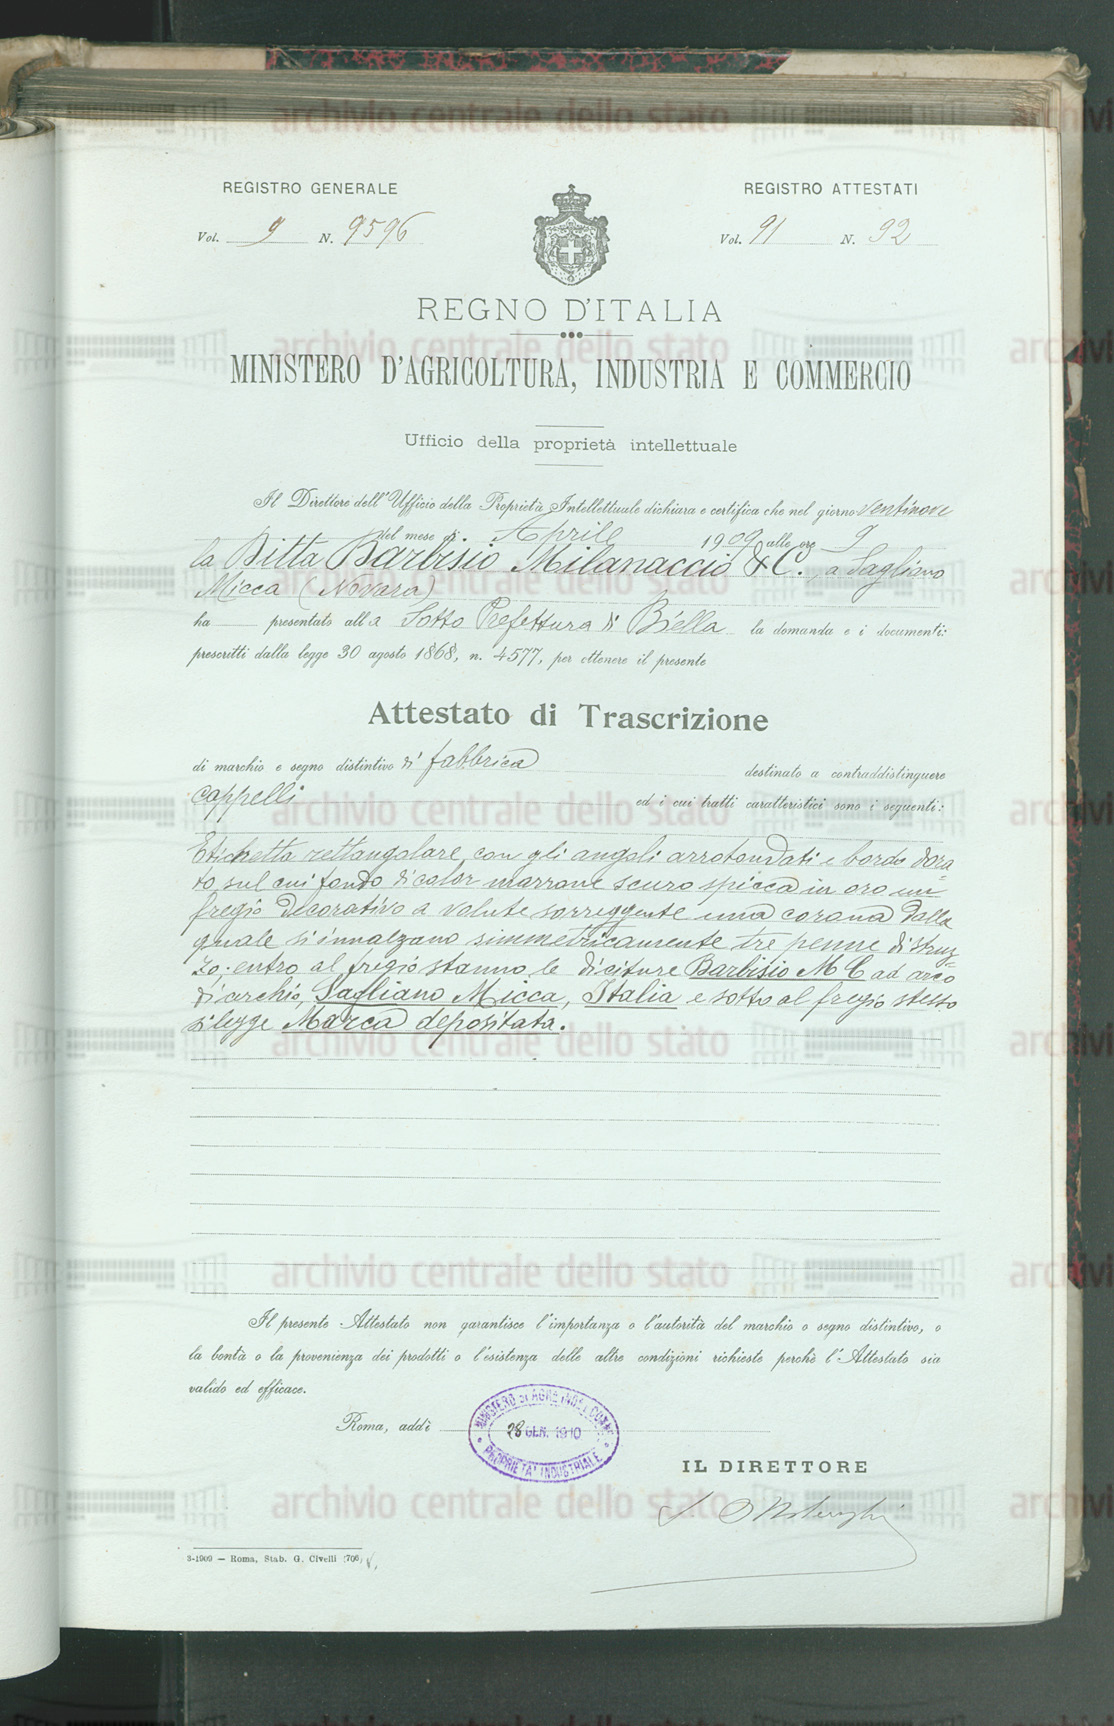 REGISTRO GENERALE
Vol. 9 N. 9596
REGISTRO ATTESTATI
Vol. 91 N. 92
REGNO D'ITALIA
MINISTERO D'AGRICOLTURA, INDUSTRIA E COMMERCIO
Ufficio della proprietà intellettuale
Il Direttore dell'Ufficio della Proprietà Intellettuale dichiara e certifica che nel giorno ventinove
del mese di Aprile 1909 alle ore 9
la Ditta Barbisio Milanaccio & C., a Sagliano
Micca (Novara)
ha presentato alla Sotto Prefettura di Biella la domanda e i documenti:
prescritti dalla legge 30 agosto 1868, n. 4577, per ottenere il presente
Attestato di Trascrizione
di marchio e segno distintivo di fabbrica destinato a contraddistinguere
cappelli ed i cui tratti caratteristici sono i seguenti:
Etichetta rettangolare, con gli angoli arrotondati e bordo dora-
to, sul cui fondo di color marrone scuro spicca in oro un
fregio decorativo a volute sorreggente una corona dalla
quale si innalzano simmetricamente tre penne di struz-
zo; entro al fregio stanno le diciture Barbisio M C ad arco
di cerchio, Sagliano Micca, Italia e sotto al fregio stesso
si legge Marca depositata.
Il presente Attestato non garantisce l'importanza o l'autorità del marchio o segno distintivo, o
la bontà o la provenienza dei prodotti o l'esistenza delle altre condizioni richieste perchè l'Attestato sia
valido ed efficace.
Roma, addì
MINISTERO DI AGRE INDE COMM
28 GEN. 1910
PROPRIETA' INDUSTRIALE
IL DIRETTORE
3-1909 — Roma, Stab. G. Civelli (706)
archivio centrale dello stato